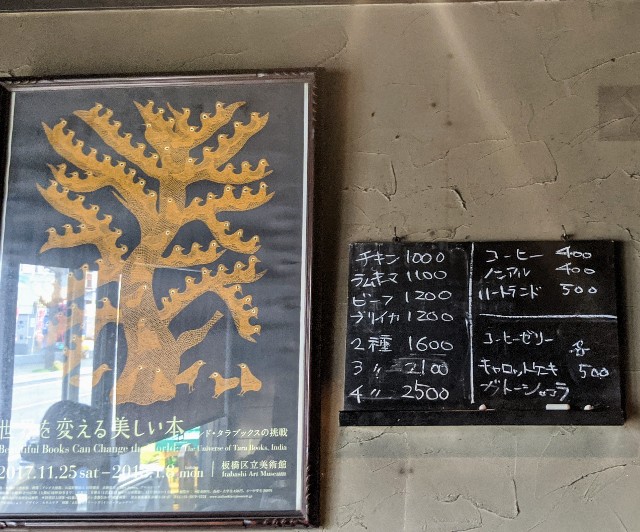 世界を変える美しい本
インド・タラブックスの挑戦
Beautiful Books Can Change the World: The Universe of Tara Books, India
2017.11.25 sat – 2018.1.8 mon
板橋区立美術館
Itabashi Art Museum
チキン 1000
ラムキマ 1100
ビーフ 1200
ブリイカ 1200
2種 1600
3〃 2100
4〃 2500
コーヒー 400
ノンアル 400
ハートランド 500
コーヒーゼリー
キャロットケーキ 500
ガトーショコラ